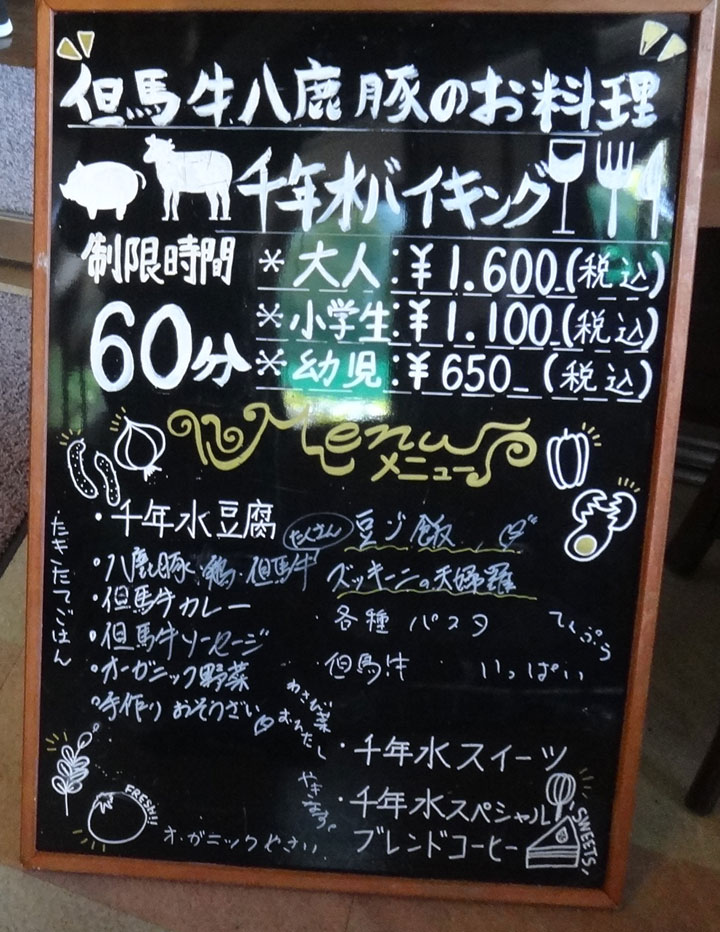 但馬牛八鹿豚のお料理
千年水バイキング
制限時間
60分
* 大人:¥1.600_(税込)
* 小学生:¥1.100_(税込)
* 幼児:¥650_(税込)
Menu
メニュー
・千年水豆腐
たくさん
・八鹿豚・鶏・但馬牛
・但馬牛カレー
・但馬牛ソーセージ
・オーガニック野菜
・手作りおそうざい
たきたてごはん
豆ゴ飯
ズッキーニの天婦羅
・各種パスタ
てんぷら
・但馬牛 いっぱい
わさび菜
おひたし
やきなす。
・千年水スイーツ
・千年水スペシャル
ブレンドコーヒー
FRESH!!
オーガニックやさい
SWEETS!